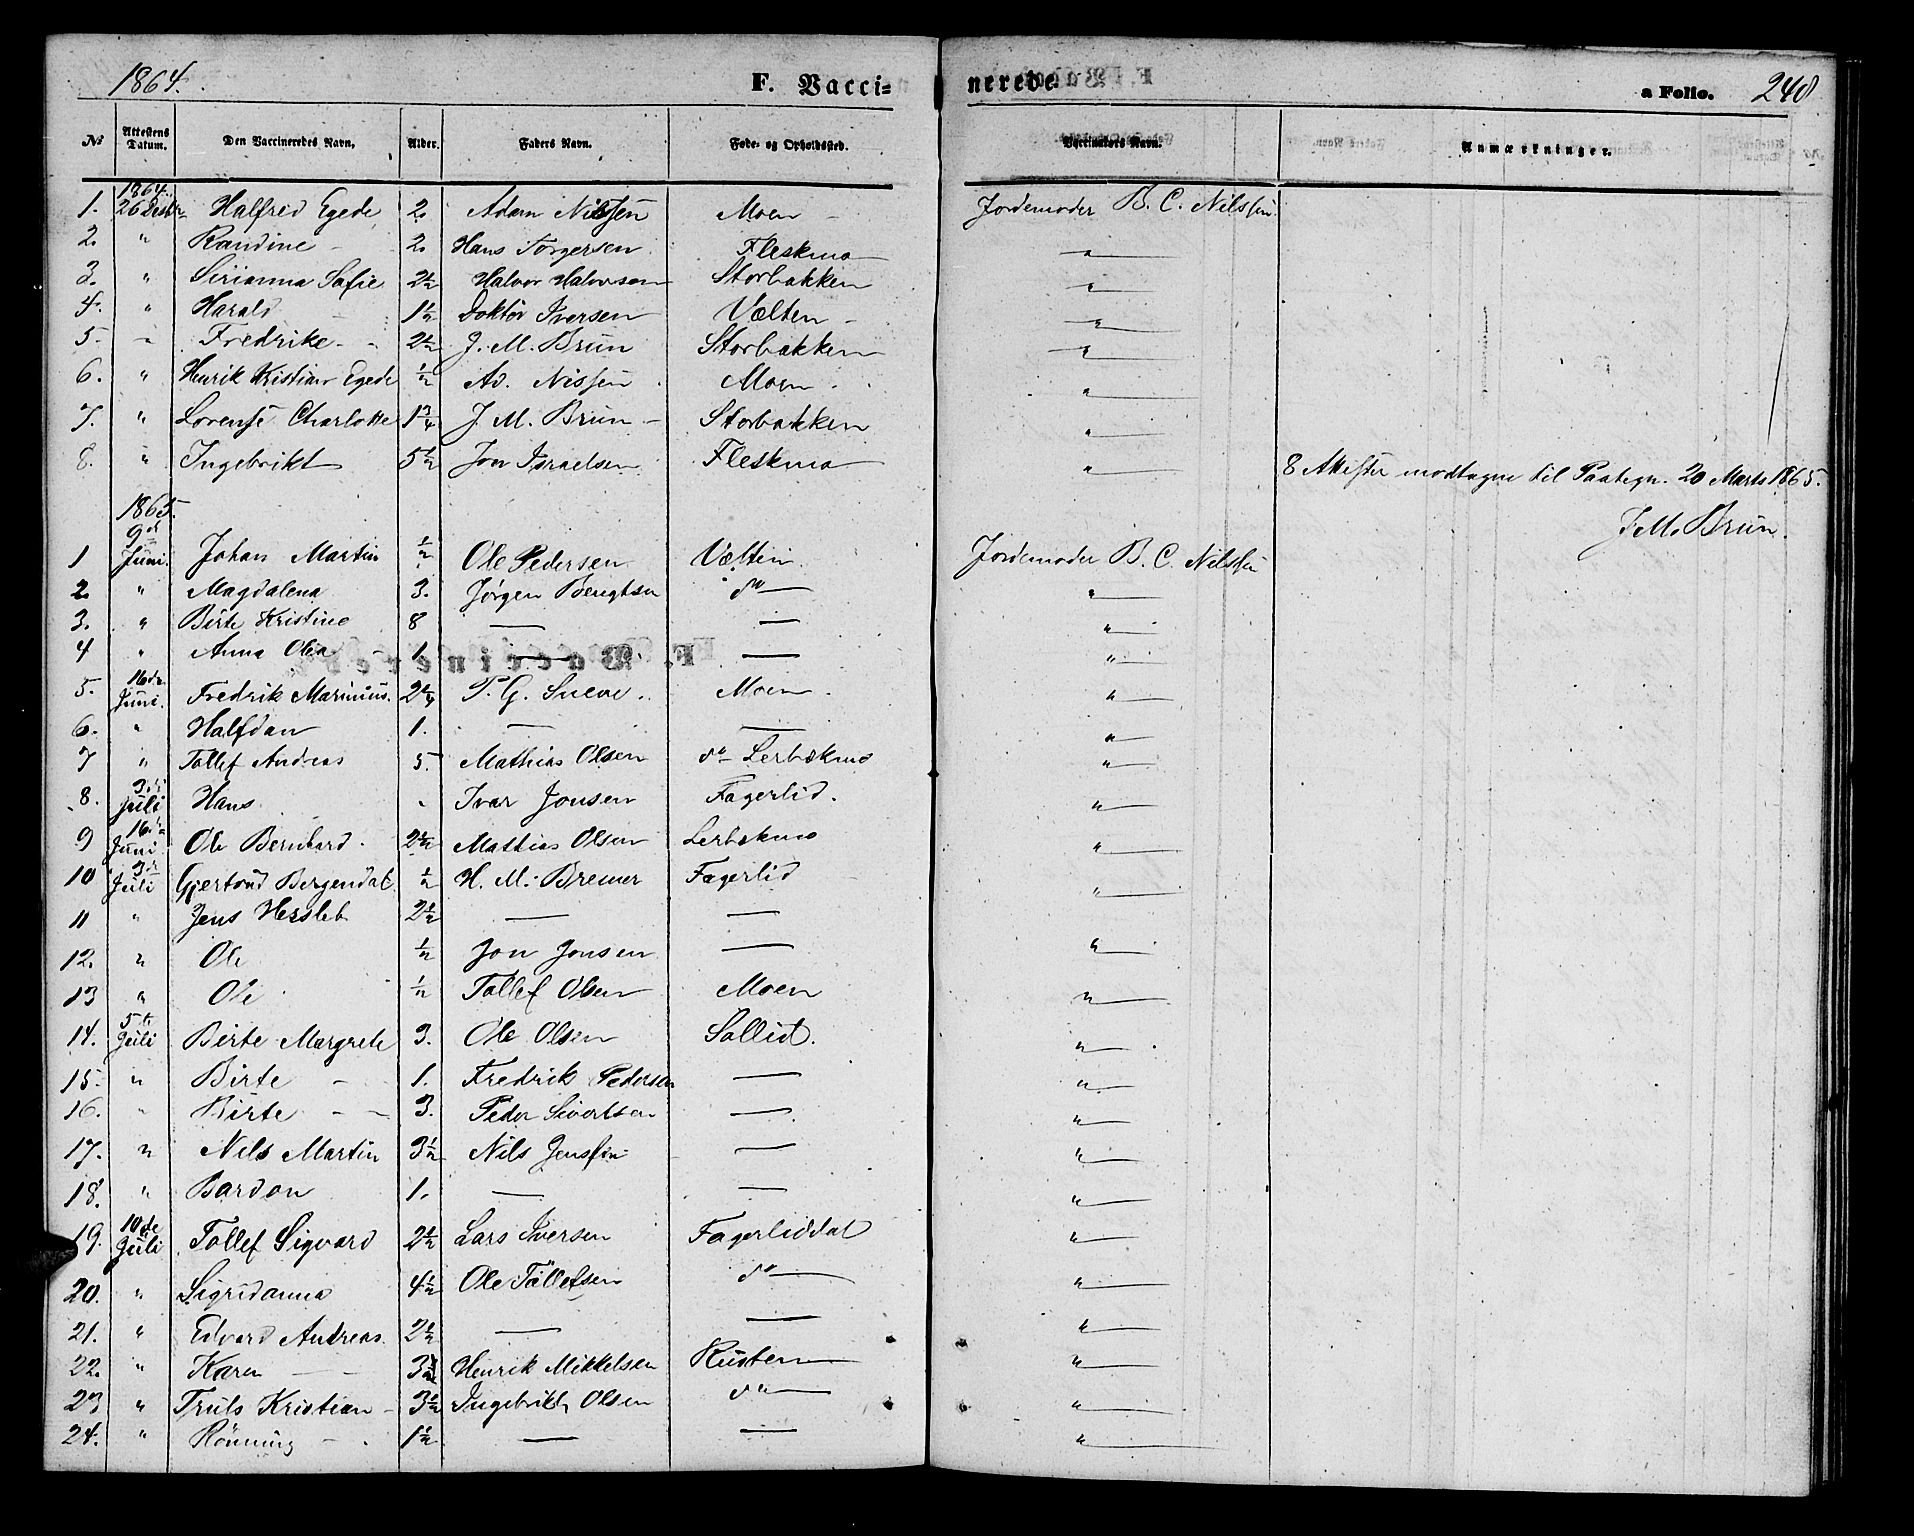 1864. F. Vaccinerede a Folio. 240
No Attestens Datum. Den Vaccineredes Navn. Alder. Faders Navn. Føde- og Opholdssted. Vaccinators Navn. Anmærkninger.
1864.
1. 26 Desbr Halfred Egede 2. Adam Nissen Moen Jordemoder B. C. Nilssen
2. " Randine 2. Hans Torgersen Fleskmo "
3. " Sirianna Sofie 2½ Halvor Halvorsen Storbakken "
4. " Harald 1½ Doktor Iversen Vælten "
5. " Fredrike 2½ J. M. Brun Storbakken "
6. " Henrik Kristian Egede ½ Ad. Nissen Moen "
7. " Lorense Charlotte 1¾ J. M. Brun Storbakken "
8. " Ingebrikt 5½ Jon Israelsen Fleskmo " 8 Attester modtagne til Paategn. 20 Marts 1865.
J M Brun.
1865.
1 9de Juni. Johan Martin ½ Ole Pedersen Vælten. Jordemoder B. C. Nilssen
2. " Magdalena 3. Jørgen Bengtsen do "
3. " Birte Kristine 8 — — "
4 " Anna Olea 1. — — "
5. 16de Juni. Fredrik Marinius. 2¼ P. G. Sneve. Moen. "
6. " Halfdan 1. — — "
7 " Tollef Andreas 5. Mathias Olsen do Lerbækmo "
8. 3di Juli Hans " Ivar Jonsen Fagerlid. "
9 16de Juni Ole Bernhard. 2½ Mathias Olsen Lerbækmo "
10 3di Juli Gjertrud Bergendal ½ H. M. Bremer Fagerlid "
11 " Jens Hersleb 2½ — —
12. " Ole ½ Jon Jonsen — "
13 " Ole ½ Tollef Olsen Moen "
14. 5te Juli Birte Margrete 3. Ole Olsen Sollid. "
15. " Birte 1. Fredrik Pedersen — "
16. " Birte 3. Peder Sivertsen — "
17. " Nils Martin 3½ Nils Jenssen — "
18. " Bardon 1. — — "
19. 10de Juli Tollef Sigvard 2½ Lars Iversen Fagerliddal "
20. " Sigridanna 4½ Ole Tollefsen do "
21. " Edvard Andreas. 2½ — — "
22. " Karen 3½ Henrik Mikkelsen Rusten "
23 " Truls Kristian 3½ Ingebrikt Olsen do "
24. " Rönning 1½ — — "